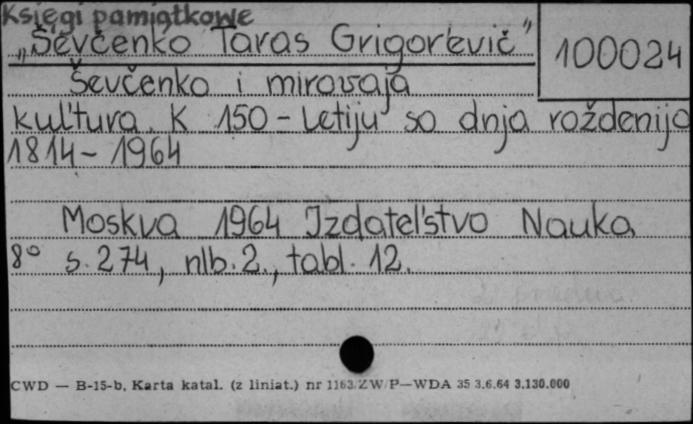 Księgi pamiątkowe
„Ševčenko Taras Grigor'evič"
100024
Ševčenko i mirovaja
kul'tura. K 150-letiju so dnja roždenija
1814-1964
Moskva 1964 Izdatel'stvo Nauka
8° s. 274, nlb. 2., tabl. 12.
CWD — B-15-b, Karta katal. (z liniat.) nr 1163/ZW/P—WDA 35 3.6.64 3.130.000